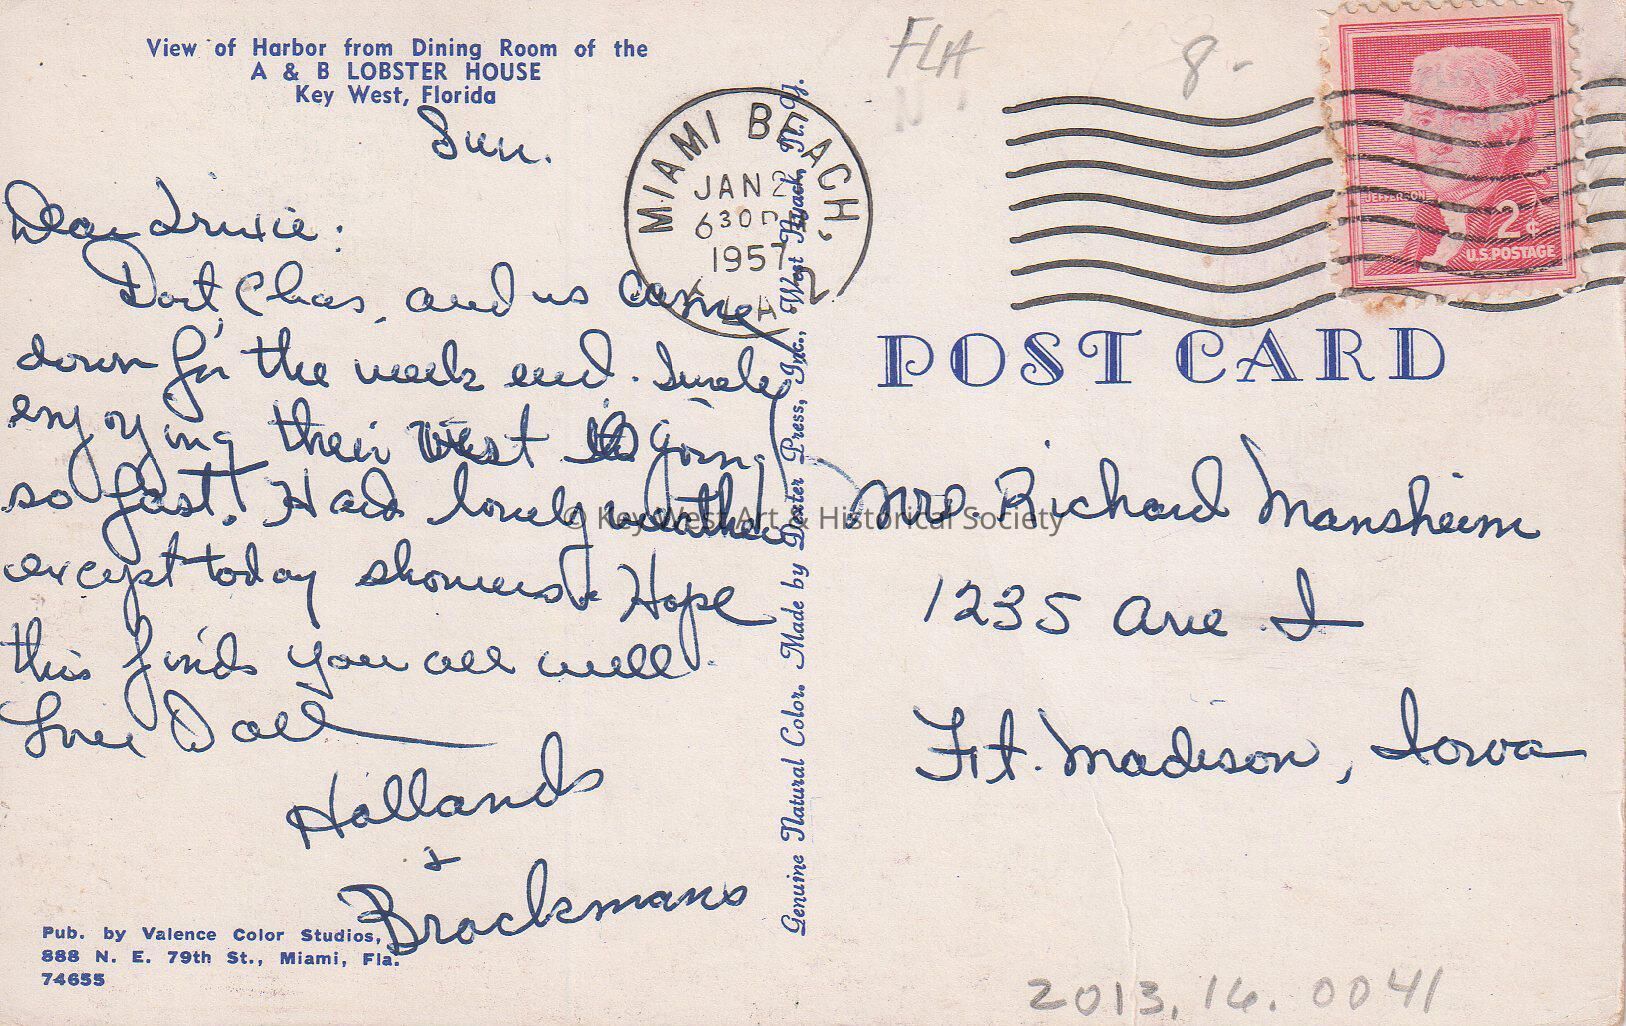 View of Harbor from Dining Room of the
A & B LOBSTER HOUSE
Key West, Florida
Sun.
Dear Trixie:
Dort, Chas, and us came
down for the week end. Surely
enjoying their west going
so fast. Had lovely weather
except today showers. Hope
this finds you all well.
Love Dall
Hollands
+
Brockmans
Pub. by Valence Color Studios,
888 N. E. 79th St., Miami, Fla.
74655
Genuine Natural Color. Made by Dexter Press, Inc., West Nyack, N. Y.
FLA
8-
MIAMI BEACH,
JAN 2
630 P
1957
LA
2
JEFFERSON
2¢
U.S. POSTAGE
POST CARD
Mrs Richard Mansheim
1235 Ave. I
Ft. Madison, Iowa
© Key West Art & Historical Society
2013.16.0041